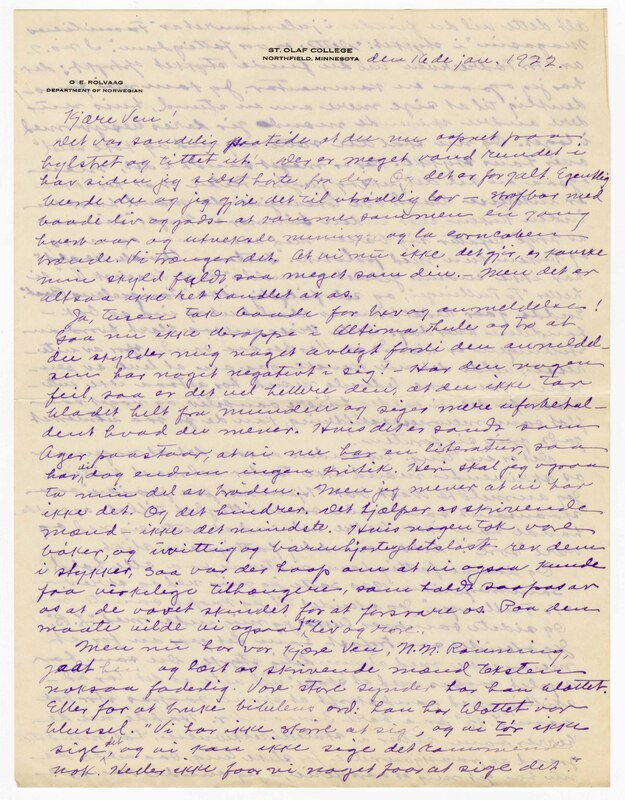 ST. OLAF COLLEGE
NORTHFIELD, MINNESOTA
den 16de jan. 1922.
O. E. ROLVAAG
DEPARTMENT OF NORWEGIAN
Kjære Ven!
Det var sandelig paatide at du nu aapnet paa
hylstret og tittet ut. Der er meget vand rundet i
hav siden jeg sidst hørte fra dig. O, det er for galt. Egentlig
burde du og jeg gjøre det til ubrødelig lov – strafbar med
baade liv og gods – at komme sammen en gang
hvert aar og utveksle mening og la corncoben
brænde. Vi trænger det. At vi nu ikke det gjør, er kanske
min skyld fuldt saa meget som din. – Men det er
altsaa ikke ret handlet av os.
Ja, tusen tak baade for brev og anmeldelse!
Gaa nu ikke deroppe i Ultima Thule og tro at
du skylder mig noget avbegt fordi den anmeldel-
sen har noget negativt i sig! – Har den nogen
feil, saa er det vel hellere den, at du ikke tar
bladet helt fra munden og siger mere uforbehol-
dent hvad du mener. Hvis det er sandt som
Ager paastaar, at vi nu har en literatur, saa
har vi dog endnu ingen kritik. Her skal jeg ogsaa
ta min del av braaden. Men jeg mener at vi har
ikke det. Og det hindrer. Det hjælper os skrivende
mænd – ikke det mindste. Hvis nogen tok vore
bøker, og vittig og barmhjertighetsløst rev dem
i stykker, saa var der haap om at vi ogsaa kunde
faa virkelige tilhængere, som holdt saapas av
os at de vovet skindet for at forsvare os. Paa den
maate vilde vi ogsaa faa liv og røre.
Men nu har vor kjære Ven, N. N. Rønning,
gaat hen og læst os skrivende mænd teksten
noksaa fadedig. Vore store synder har han blottet.
Eller for at bruke bibelens ord: han har blottet vor
blussel. "Vi har ikke stort at sige, og vi tør ikke
sige det, og vi kan ikke sige det ramme
nok. Heller ikke faar vi noget for at sige det."